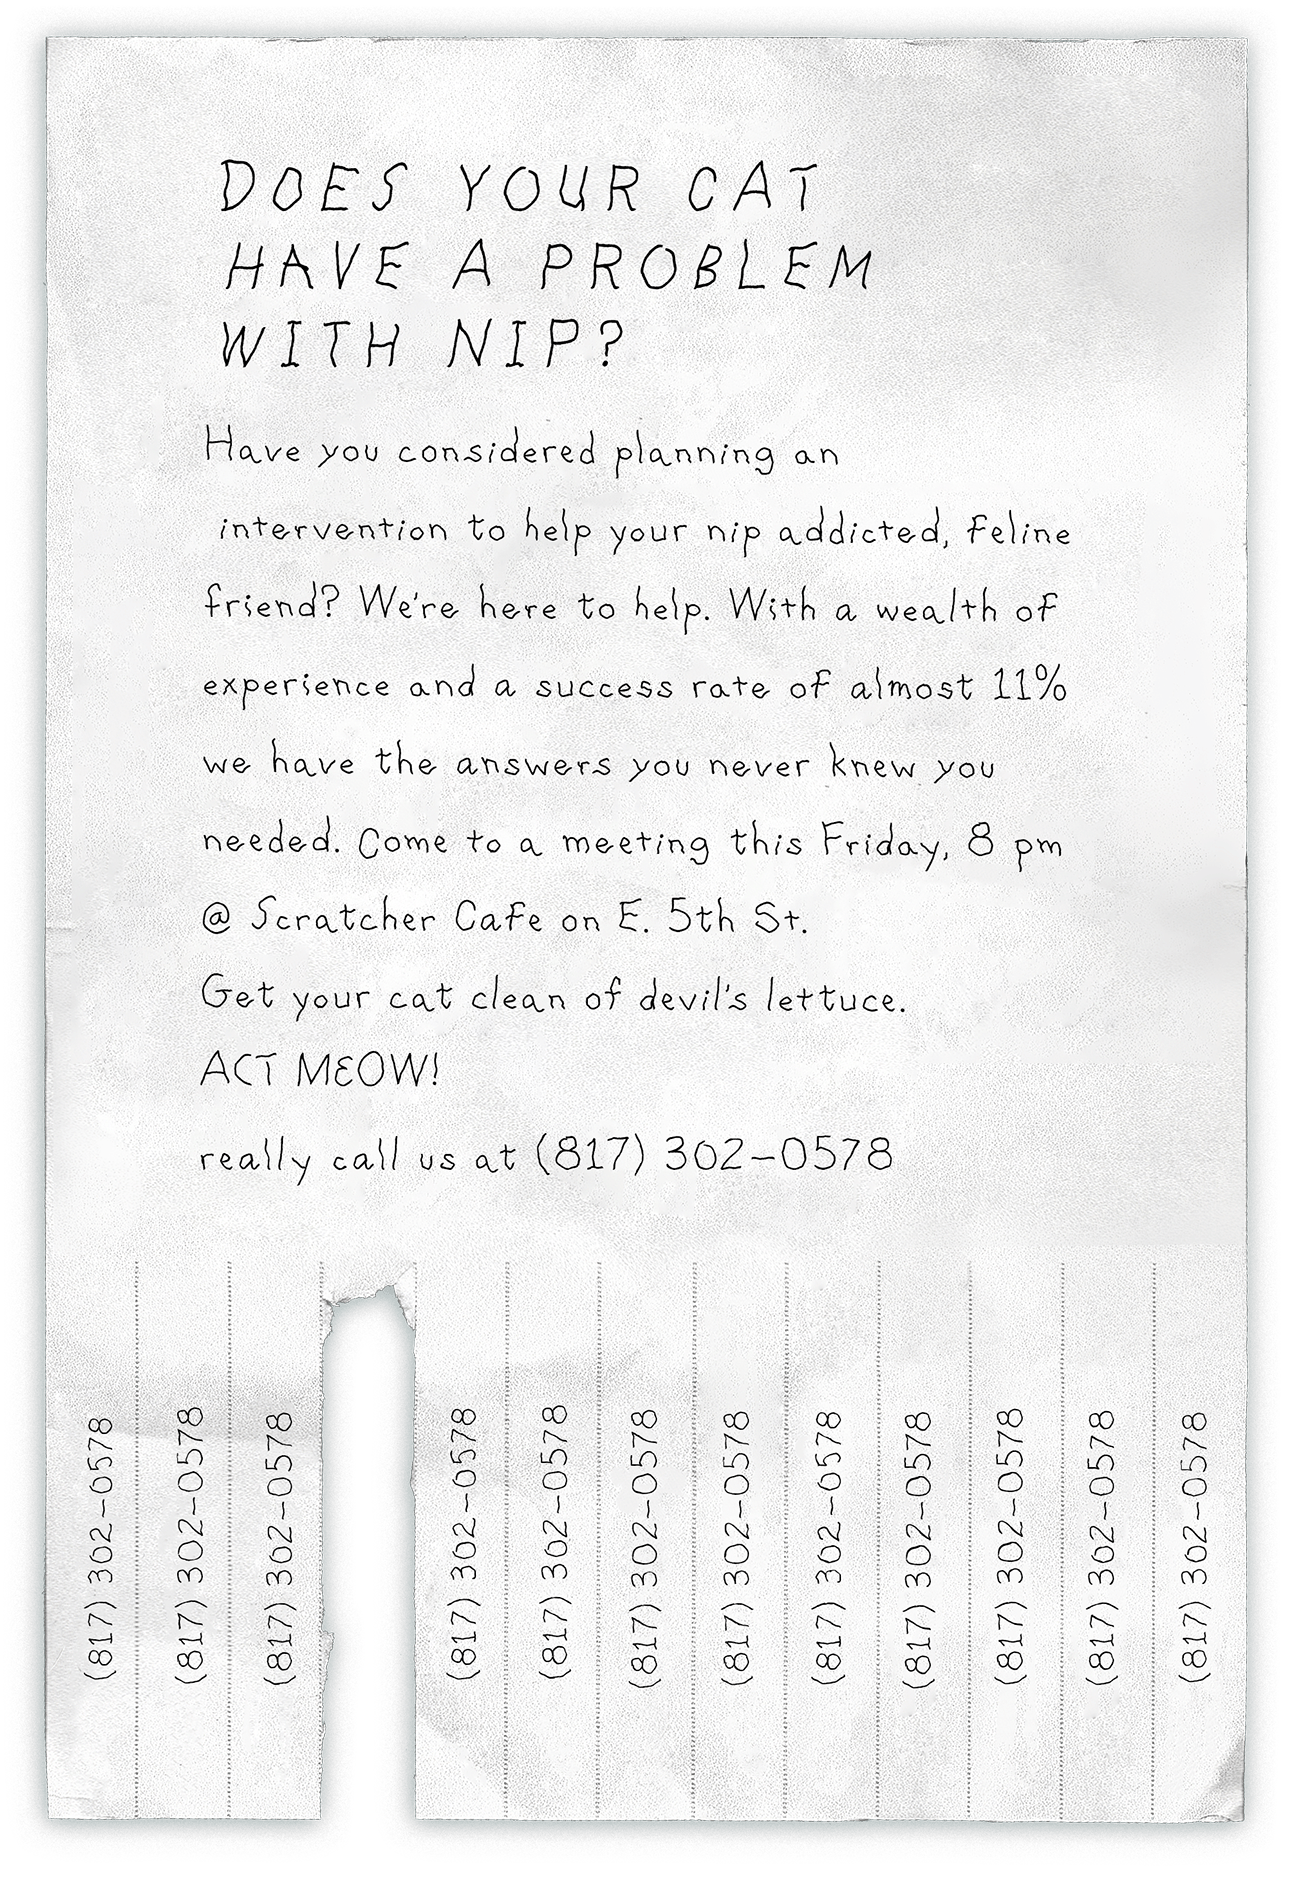 DOES YOUR CAT
HAVE A PROBLEM
WITH NIP?
Have you considered planning an
intervention to help your nip addicted, feline
friend? We're here to help. With a wealth of
experience and a success rate of almost 11%
we have the answers you never knew you
needed. Come to a meeting this Friday, 8 pm
@ Scratcher Cafe on E. 5th St.
Get your cat clean of devil's lettuce.
ACT MEOW!
really call us at (817) 302-0578
(817) 302-0578
(817) 302-0578
(817) 302-0578
(817) 302-0578
(817) 302-0578
(817) 302-0578
(817) 302-0578
(817) 302-0578
(817) 302-0578
(817) 302-0578
(817) 302-0578
(817) 302-0578